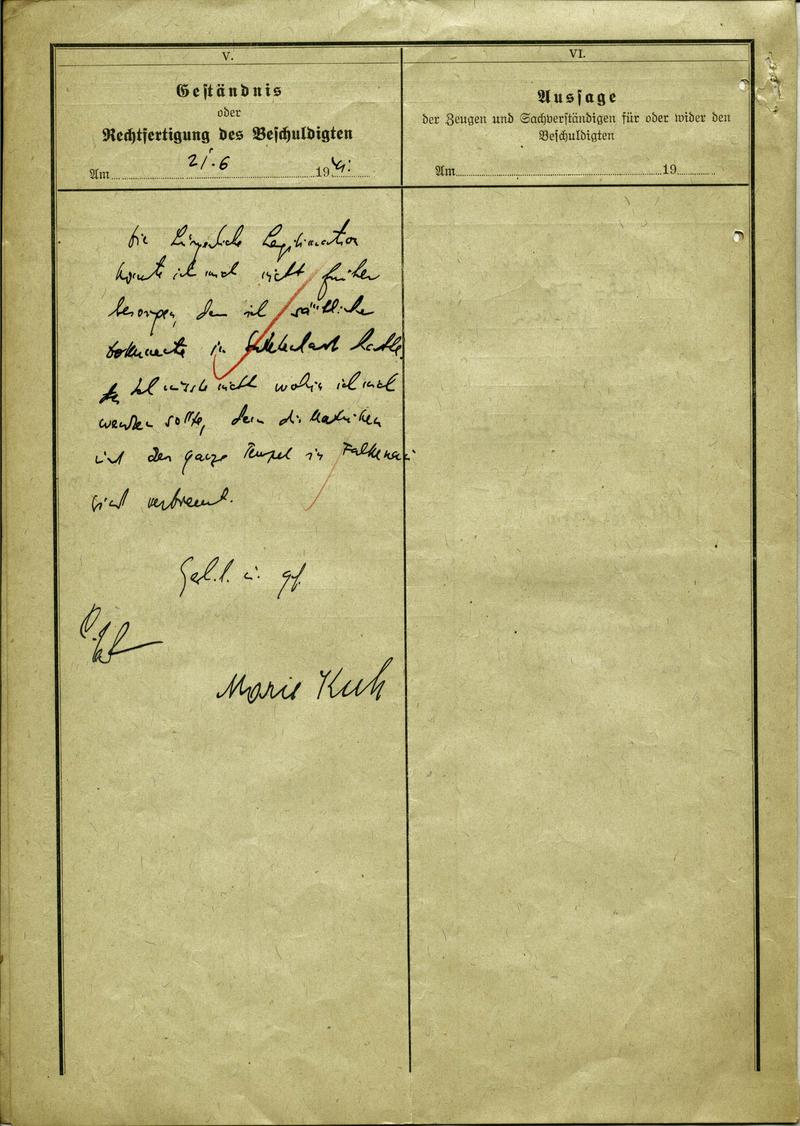 V.
Geständnis
oder
Rechtfertigung des Beschuldigten
Am 21.6 1941.
VI.
Aussage
der Zeugen und Sachverständigen für oder wider den
Beschuldigten
Am 19
die
konnte ich mich nicht früher
besorgen, den ich sämtliche
Dokumente in hatte,
Ich wusste nicht wohin ich mich
wenden sollte, den die Matriken
und der ganze Tempel in Falkenau
sind verbrannt.
Marie Kuh